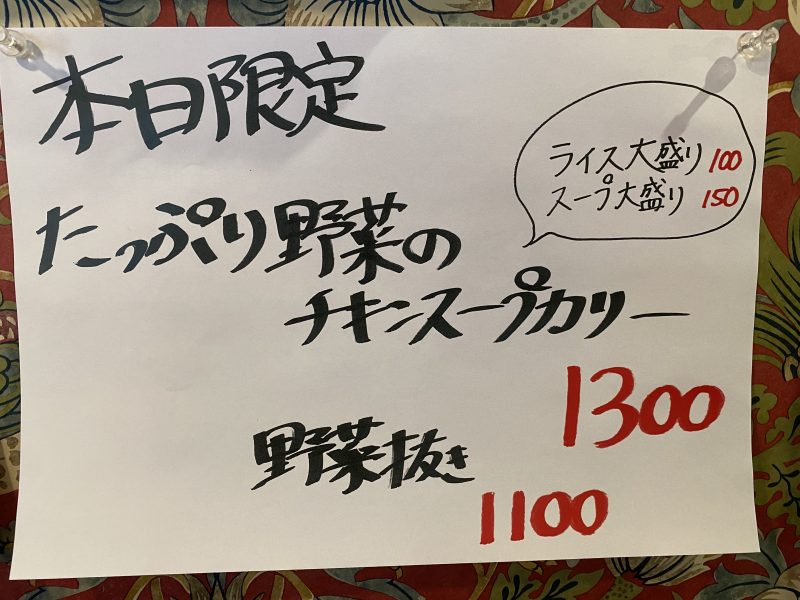 本日限定
ライス大盛り 100
スープ大盛り 150
たっぷり野菜の
チキンスープカリー
1300
野菜抜き
1100